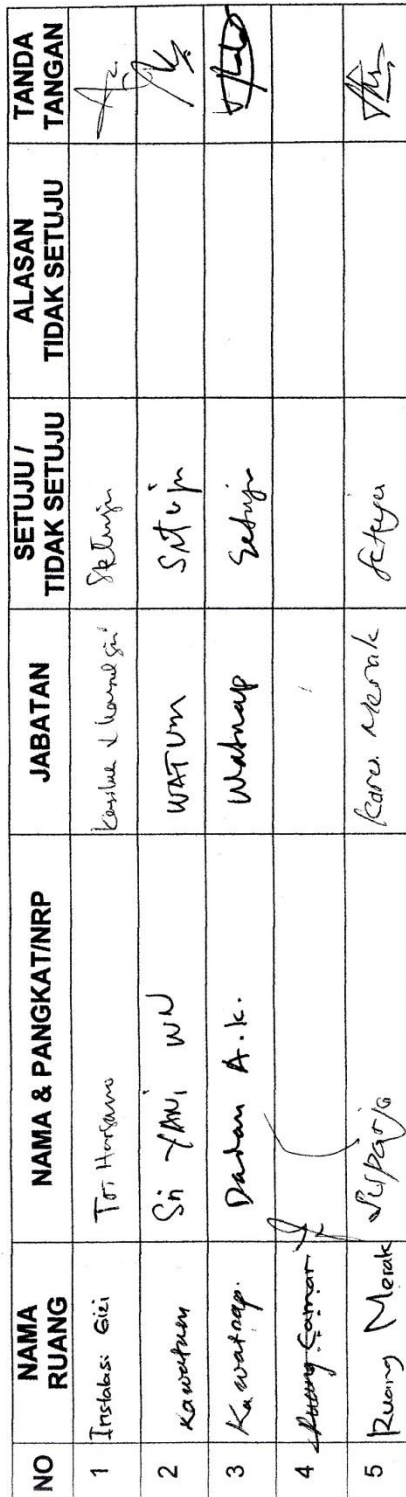 NO NAMA RUANG NAMA & PANGKAT/NRP JABATAN SETUJU / TIDAK SETUJU ALASAN TIDAK SETUJU TANDA TANGAN
1 Instalasi Gizi Tri Harsono
2 Kawatum Sri YANI WN WATUM Setuju
3 Kawatnap. Dadan A.k. Watnap Setuju
4 Ruang Camar
5 Ruang Merak Suparjo Karu Merak Setuju